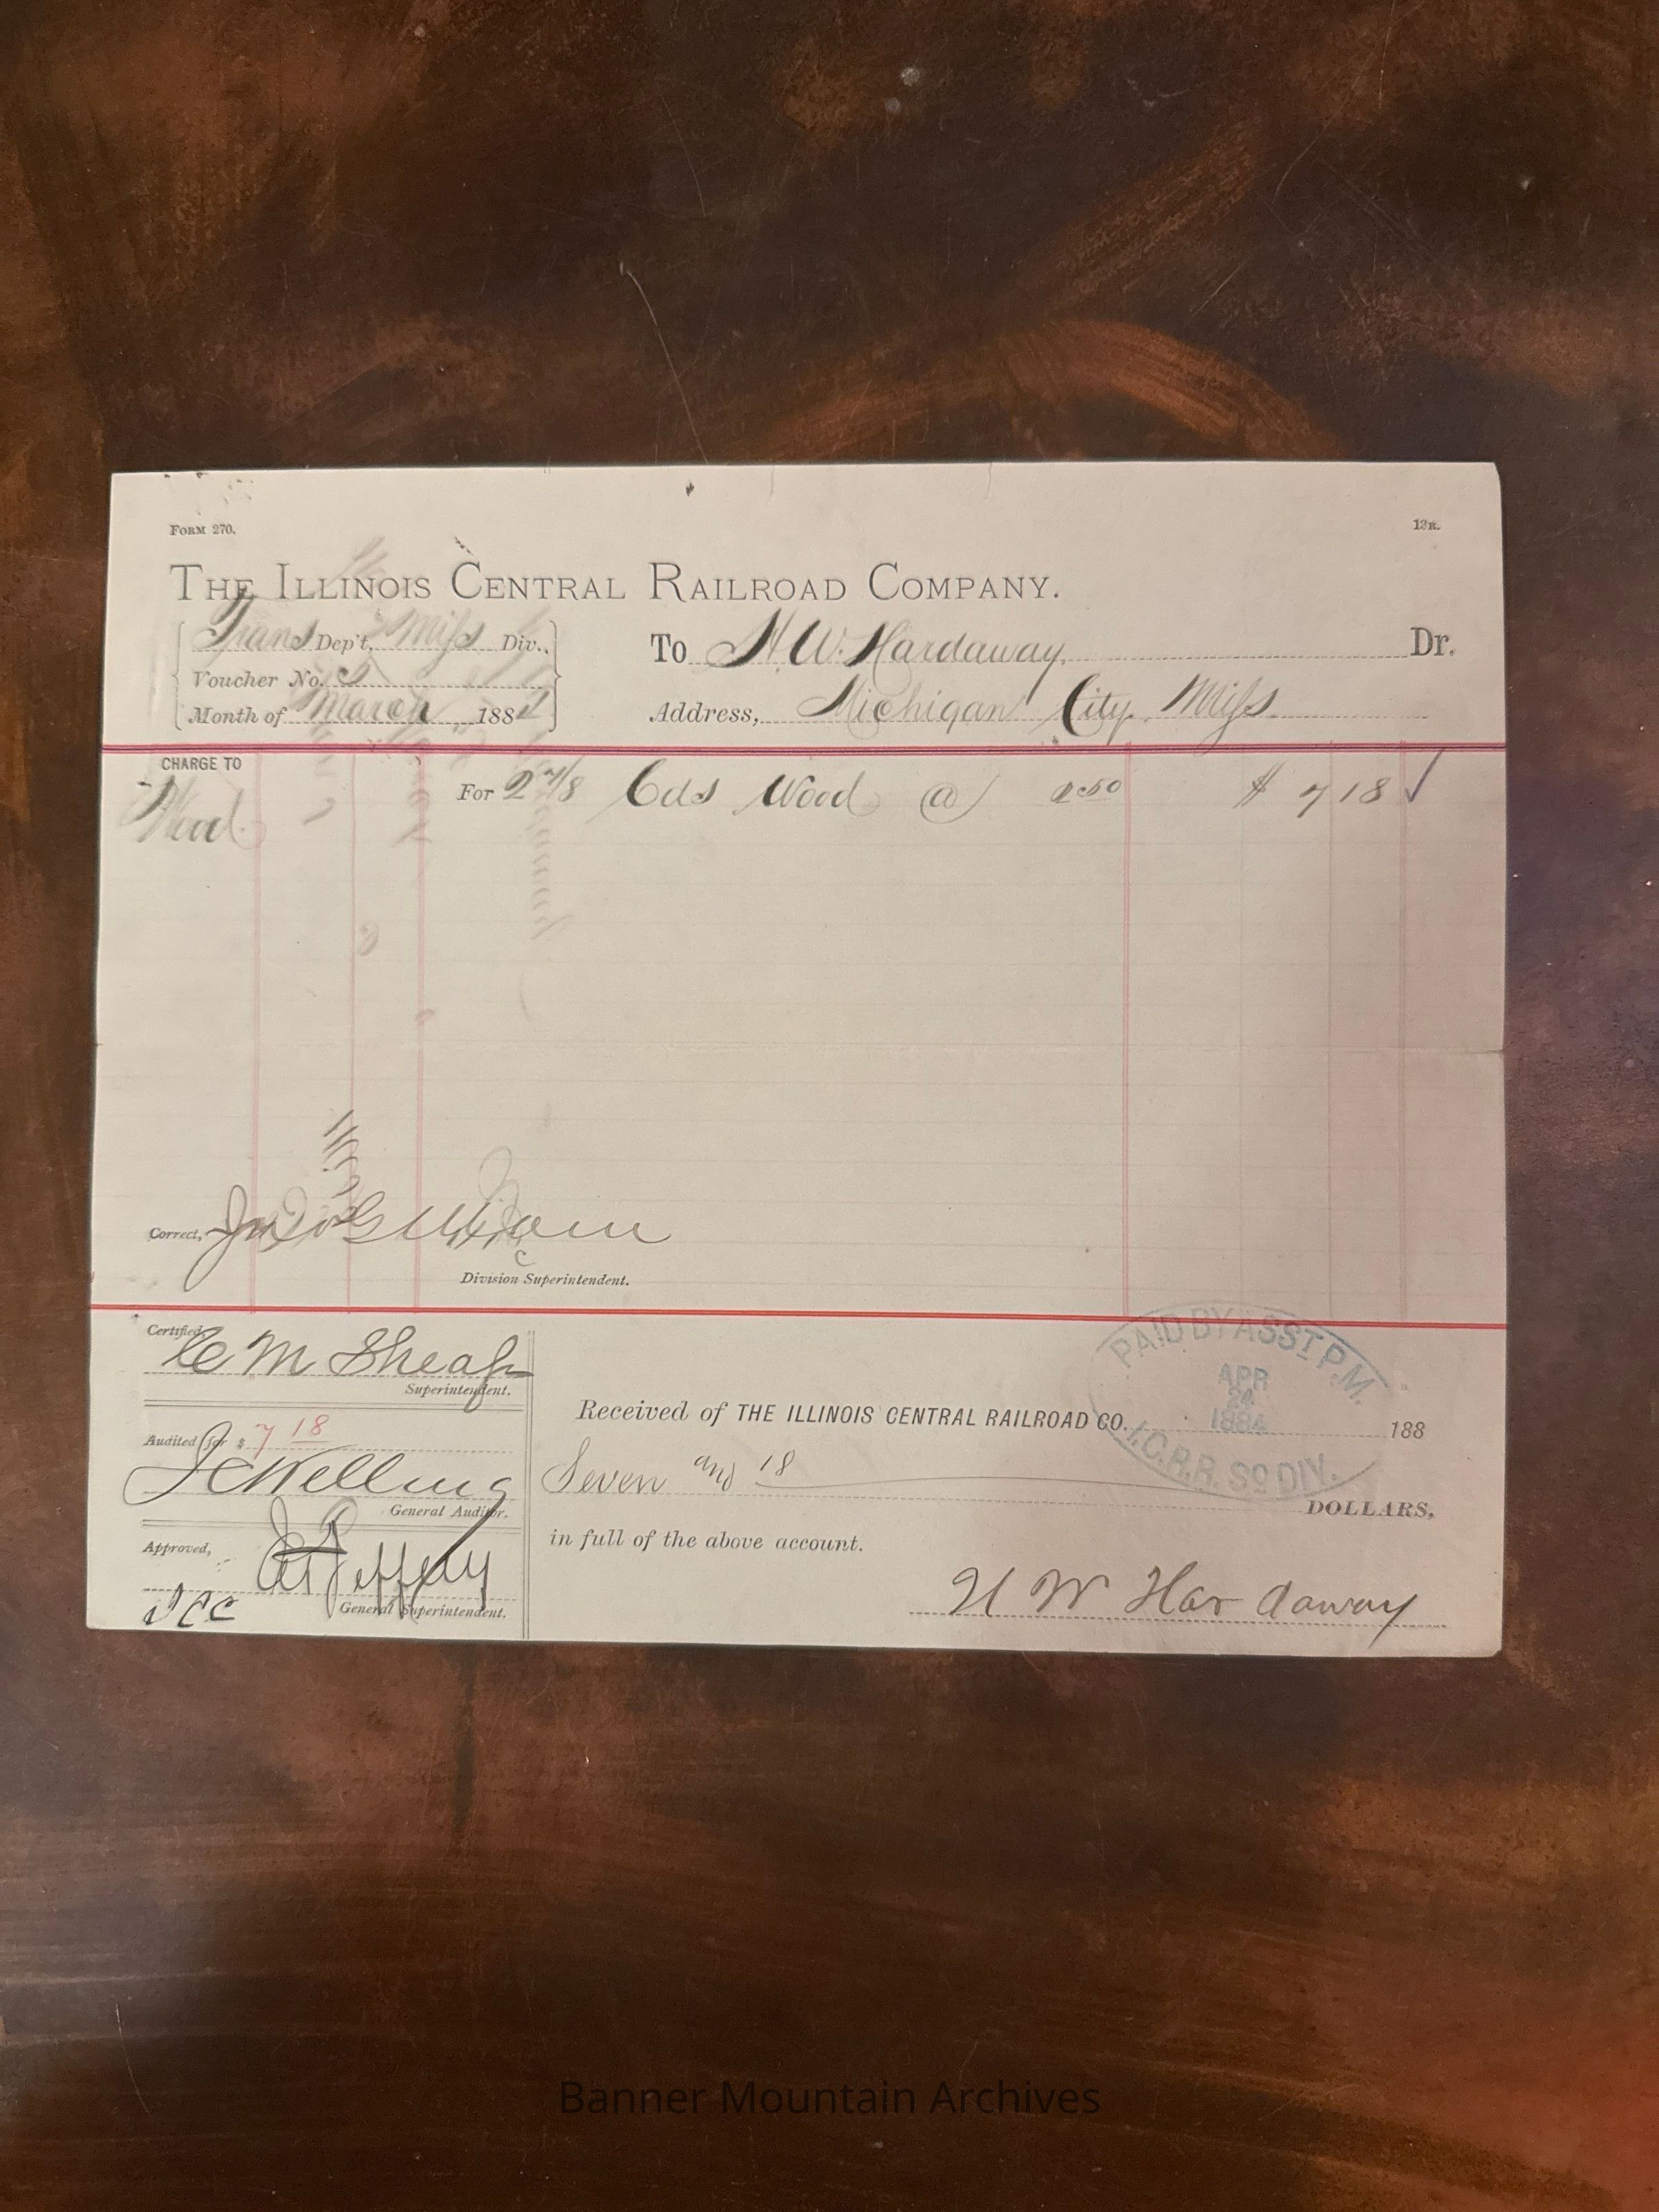 FORM 270.
13R.
THE ILLINOIS CENTRAL RAILROAD COMPANY.
Trans Dep't, Miss Div.,
Voucher No.
Month of March 1884
To H. W. Hardaway, Dr.
Address, Michigan City, Miss.
CHARGE TO
Wood
For 2 7/8 Cds Wood @ 2.50 $ 7 18 ✓
Correct,
Division Superintendent.
Certified,
C M Sheaf
Superintendent.
Audited for $ 7 18
J C Welling
General Auditor.
Approved,
Jeffery
General Superintendent.
PAID BY ASST P.M.
APR
24
1884
I.C.R.R. So DIV.
Received of THE ILLINOIS CENTRAL RAILROAD CO. 188
Seven and 18 DOLLARS,
in full of the above account.
H W Hardaway
Banner Mountain Archives